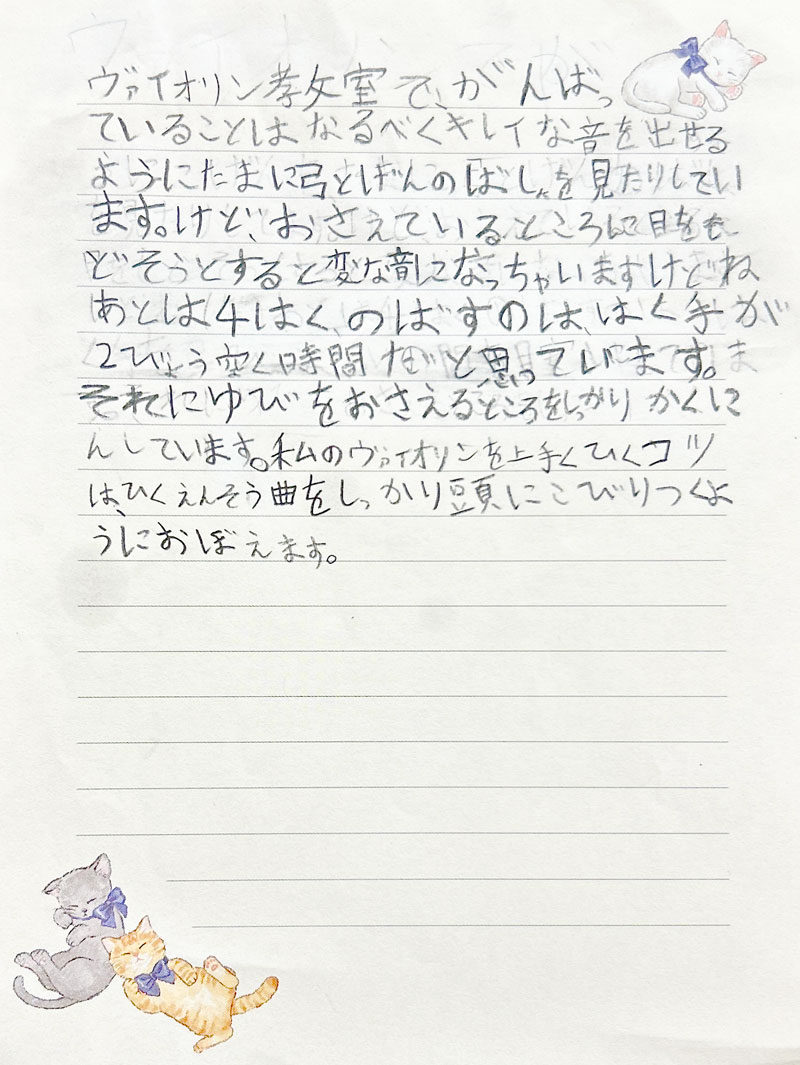 ヴァイオリン教室で、がんばっ
ていることは なるべくキレイな音を出せる
ようにたまに弓とげんのばしょを見たりしてい
ます。けど、おさえているところに目をも
どそうとすると変な音になっちゃいますけどね
あとは4はく、のばすのは、はく手が
2びょう空く時間だと思っています。
それにゆびをおさえるところをしっかりかくに
んしています。私のヴァイオリンを上手くひくコツ
は、ひくえんそう曲をしっかり頭にこびりつくよ
うにおぼえます。